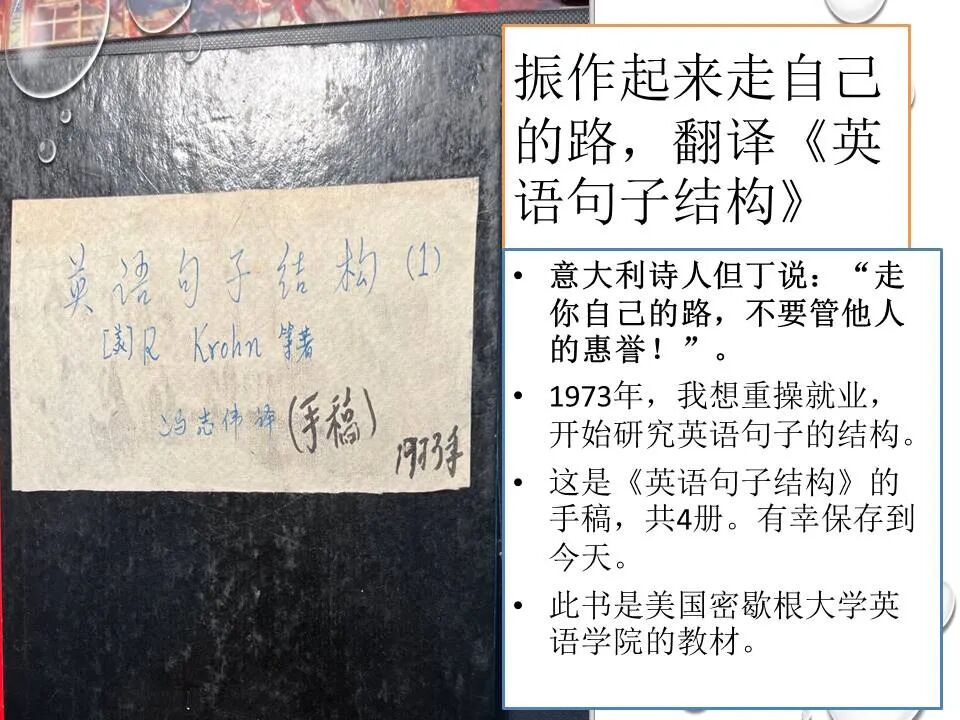 英语句子结构(1)
[美]R Krohn 等著
冯志伟 译 (手稿)
1973年
振作起来走自己
的路，翻译《英
语句子结构》
• 意大利诗人但丁说：“走
你自己的路，不要管他人
的惠誉！”。
• 1973年，我想重操就业，
开始研究英语句子的结构。
• 这是《英语句子结构》的
手稿，共4册。有幸保存到
今天。
• 此书是美国密歇根大学英
语学院的教材。